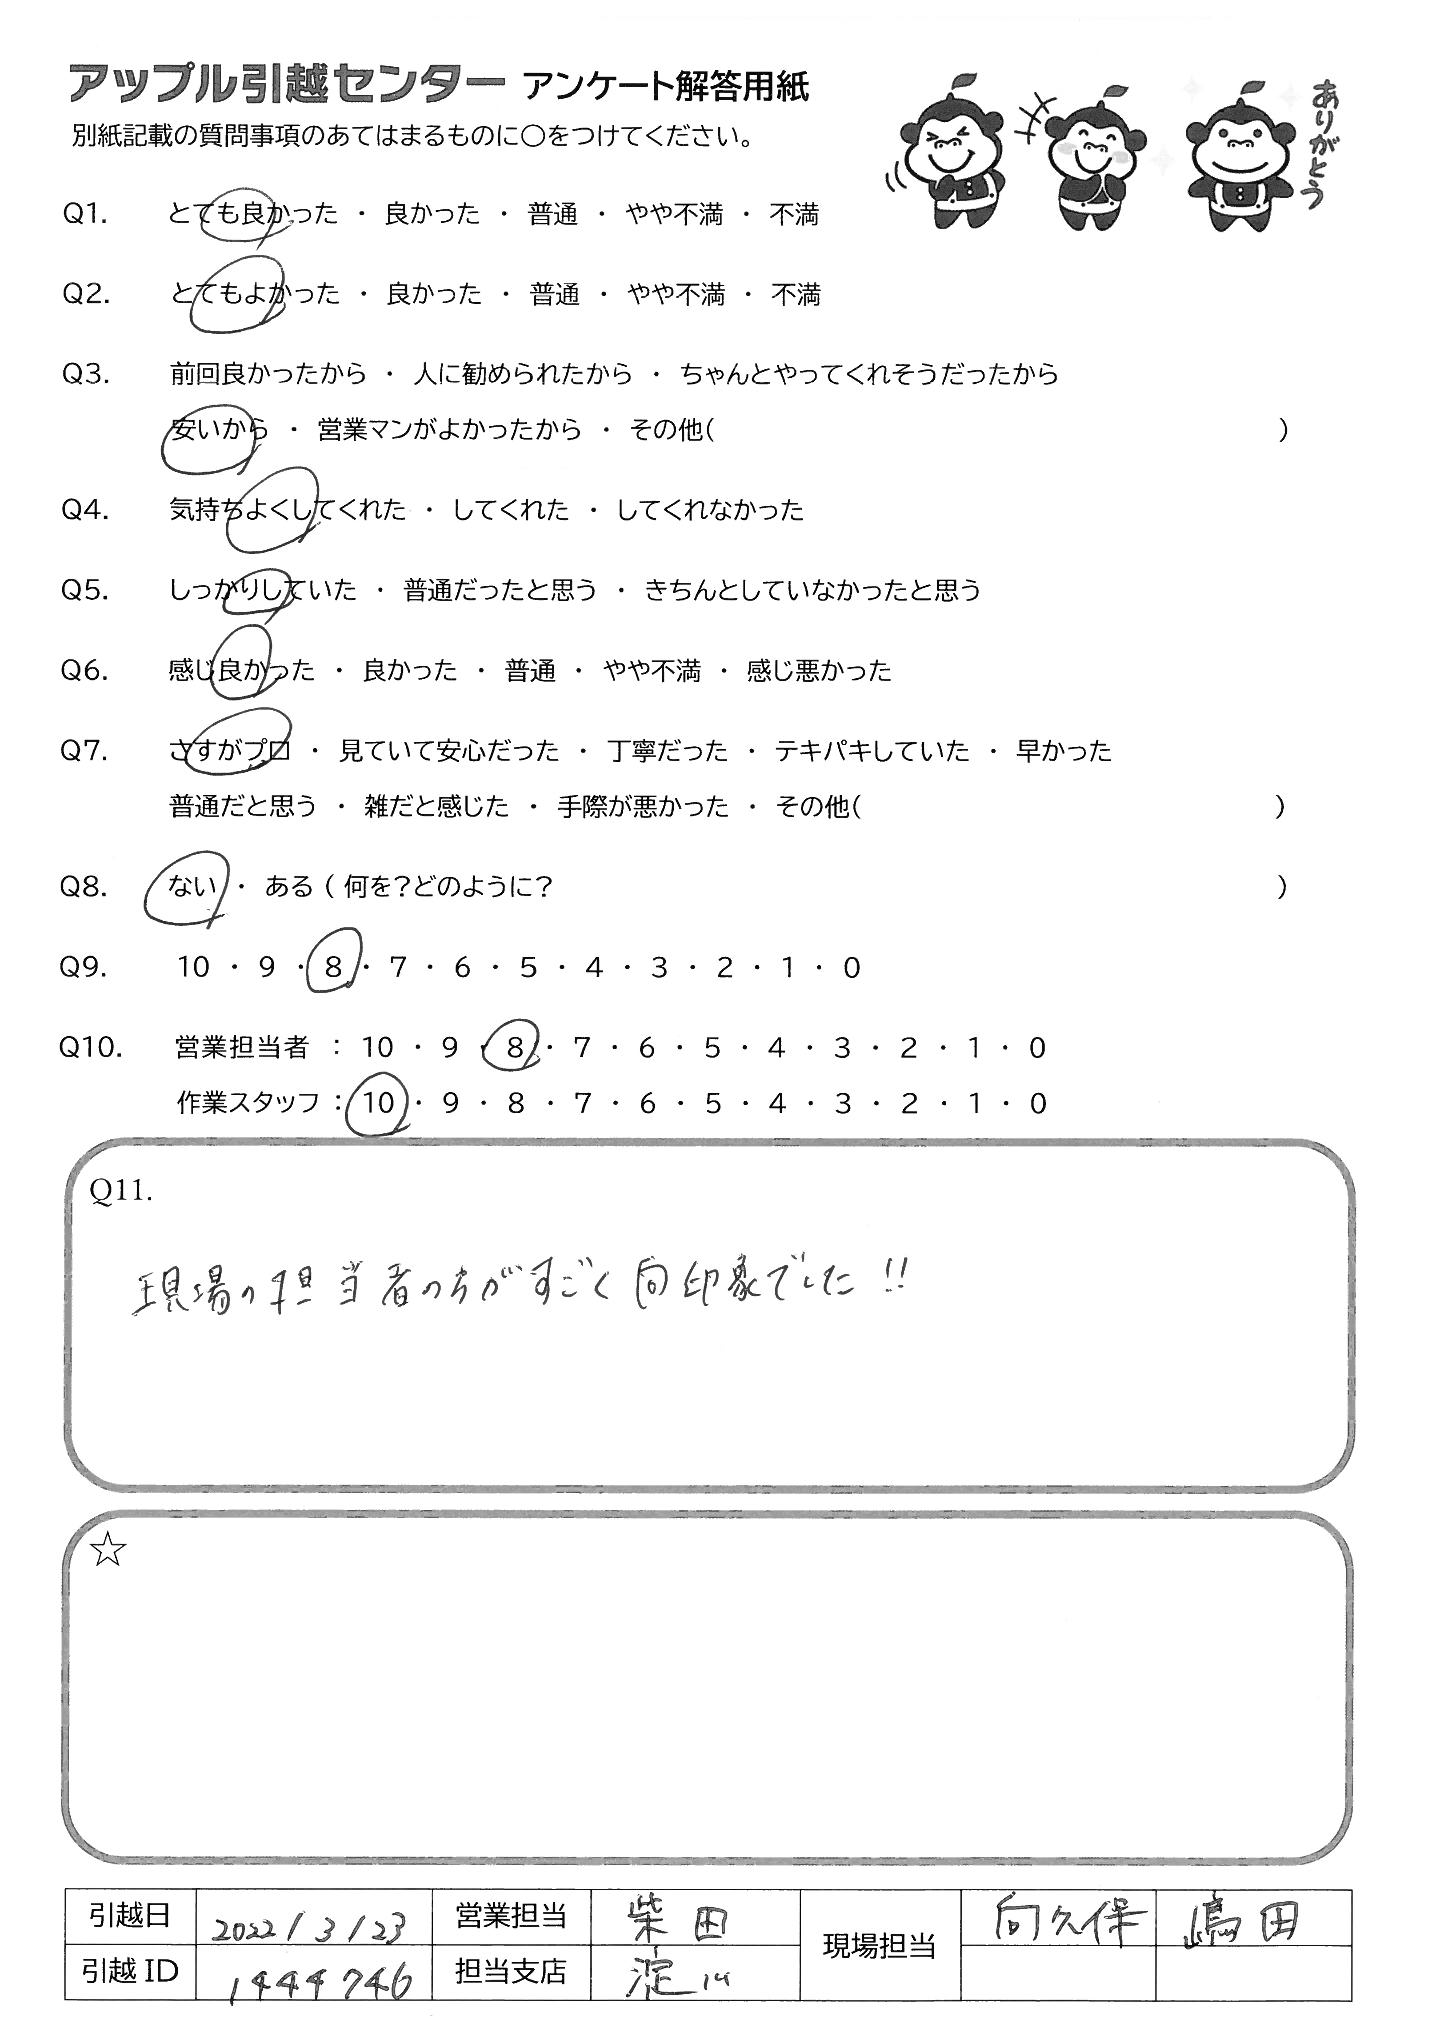 アップル引越センター アンケート解答用紙
ありがとう
別紙記載の質問事項のあてはまるものに○をつけてください。
Q1. とても良かった ・ 良かった ・ 普通 ・ やや不満 ・ 不満
Q2. とてもよかった ・ 良かった ・ 普通 ・ やや不満 ・ 不満
Q3. 前回良かったから ・ 人に勧められたから ・ ちゃんとやってくれそうだったから
安いから ・ 営業マンがよかったから ・ その他( )
Q4. 気持ちよくしてくれた ・ してくれた ・ してくれなかった
Q5. しっかりしていた ・ 普通だったと思う ・ きちんとしていなかったと思う
Q6. 感じ良かった ・ 良かった ・ 普通 ・ やや不満 ・ 感じ悪かった
Q7. さすがプロ ・ 見ていて安心だった ・ 丁寧だった ・ テキパキしていた ・ 早かった
普通だと思う ・ 雑だと感じた ・ 手際が悪かった ・ その他( )
Q8. ない ・ ある ( 何を?どのように? )
Q9. 10 ・ 9 ・ 8 ・ 7 ・ 6 ・ 5 ・ 4 ・ 3 ・ 2 ・ 1 ・ 0
Q10. 営業担当者 : 10 ・ 9 ・ 8 ・ 7 ・ 6 ・ 5 ・ 4 ・ 3 ・ 2 ・ 1 ・ 0
作業スタッフ : 10 ・ 9 ・ 8 ・ 7 ・ 6 ・ 5 ・ 4 ・ 3 ・ 2 ・ 1 ・ 0
Q11.
現場の担当者の方がすごく向印象でした!!
☆
引越日 2022/3/23 営業担当 柴田 現場担当 向久保 嶋田
引越ID 1444746 担当支店 淀川